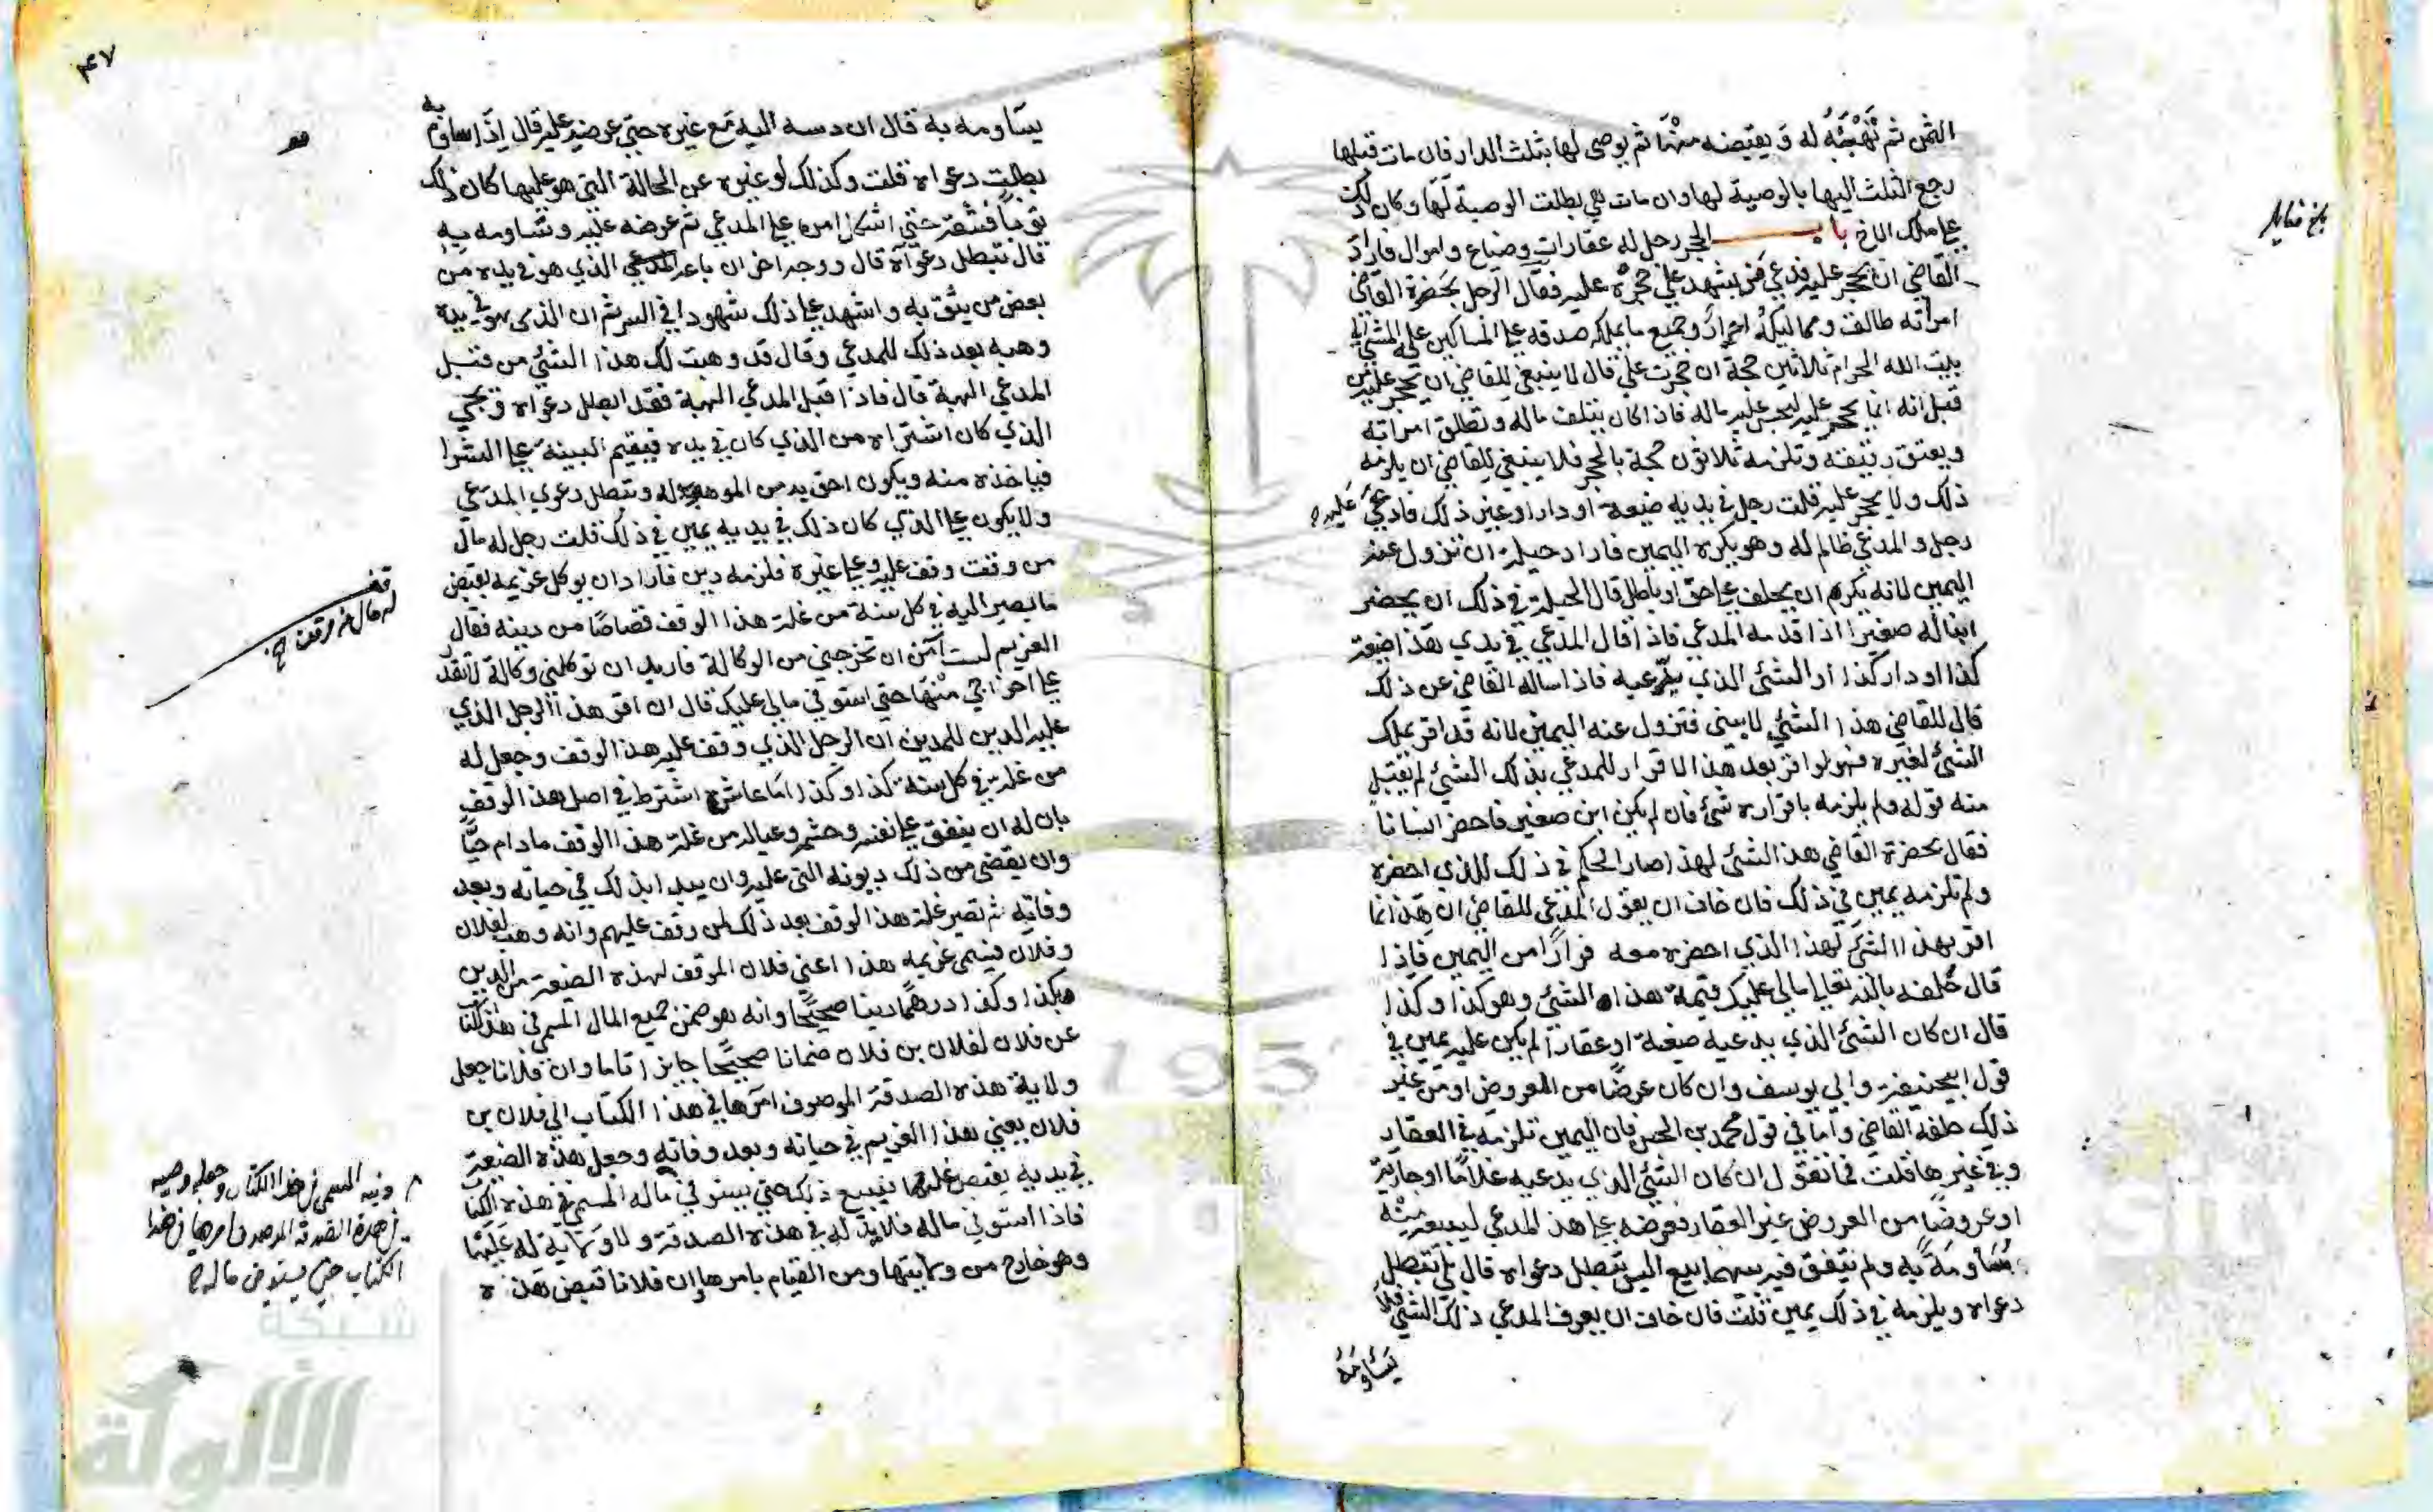 الثمن ثم تهبه له ويقبضه منها ثم يوصي لها بثلث الدار فان مات قبلها
رجع الثلث اليها بالوصية لها وان مات هي بطلت الوصية لها وكان ذلك
على ملك الاخ باب الحجر رجل له عقارات وضياع واموال فاراد
القاضي ان يحجر عليه فدعي من يشهد على حجره عليه فقال الرجل بحضرة القاضي
امراته طالق ومماليكه احرار وجميع ما يملكه صدقه على المساكين عليه المشي الى
بيت الله الحرام ثلاثين حجة ان حجرت علي قال لا ينبغي للقاضي ان يحجر عليه من
قبل انه انما يحجر عليه ليحبس عليه ماله فاذا كان يتلف ماله وتطلق امراته
ويعتق رقيقه وتلزمه ثلاثون حجة بالحجر فلا ينبغي للقاضي ان يلزمه
ذلك ولا يحجر عليه قلت رجل في يديه ضيعة او دار او غير ذلك فادعى عليه
رجل والمدعي ظالم له وهو يكره اليمين فاراد حيلة ان تزول عنه
اليمين لانه يكره ان يحلف على حق او باطل قال الحيلة في ذلك ان يحضر
ابنا له صغيرا اذا قدمه المدعي فاذا قال المدعي في يدي هذا ضيعة
كذا او دار كذا او الشئ الذي يدعيه فاذا ساله القاضي عن ذلك
قال للقاضي هذا الشئ لابني فتزول عنه اليمين لانه قد اقر بملك
الشئ لغيره فهو لو اقر بعد هذا الاقرار للمدعي بذلك الشئ لم يقبل
منه قوله ولم يلزمه باقراره شئ فان لم يكن ابن صغير فاحضر انسانا
فقال بحضرة القاضي هذا الشئ لهذا صار الحكم في ذلك للذي احضره
ولم تلزمه يمين في ذلك فان خاف ان يقول المدعي للقاضي ان هذا انما
اقر بهذا الشئ لهذا الذي احضره معه فرارا من اليمين فاذا
قال حلفه بالله تعالى ما لي عليك قيمة هذا الشئ وهو كذا وكذا
قال ان كان الشئ الذي يدعيه ضيعة او عقارا لم يكن عليه يمين في
قول ابي حنيفة وابي يوسف وان كان عرضا من العروض او من غير
ذلك حلفه القاضي واما في قول محمد بن الحسن فان اليمين تلزمه في العقار
وفي غيرها قلت فما تقول ان كان الشئ الذي يدعيه غلاما او جارية
او عروضا من العروض غير العقار فعرضه على هذا المدعي ليبيعه منه
مساومة به ولم يتفق فيه بينهما بيع اليس تبطل دعواه قال بلى تبطل
دعواه ويلزمه في ذلك يمين قلت فان خاف ان يعرف المدعي ذلك الشئ فلا
يساومه
بلغ مقابلة
٤٧
يساومه به قال ان دسه اليه مع غيره حتى عرضه عليه قال اذا ساوم به
بطلت دعواه قلت وكذلك لو غيره عن الحالة التي هو عليها كان ذلك
ثوبا فنشره حتى اشكل امره على المدعي ثم عرضه عليه وساومه به
قال تبطل دعواه قال ووجه اخر ان باع المدعي الذي هو في يده من
بعض من يثق به واشهد على ذلك شهودا في السر ثم ان الذي هو في يده
وهبه بعد ذلك للمدعي وقال قد وهبت لك هذا الشئ من قبل
المدعي الهبة قال فاذا قبل المدعي الهبة فقد ابطل دعواه ويجي
الذي كان اشتراه من الذي كان في يده فيقيم البينة على الشرا
فياخذه منه ويكون احق به من الموهوب له وتبطل دعوى المدعي
ولا يكون على الذي كان ذلك في يديه يمين في ذلك قلت رجل له مال
من وقف وقف عليه وعلى غيره فلزمه دين فاراد ان يوكل غريمه بقبض
ما يصير اليه في كل سنة من غلة هذا الوقف قصاصا من دينه فقال
الغريم لست آمن ان تخرجني من الوكالة فاريد ان توكلني وكالة لا تقدر
على اخراجي منها حتى استوفي مالي عليك قال ان اقر هذا الرجل الذي
عليه الدين للمدين ان الرجل الذي وقف عليه هذا الوقف وجعل له
من غلته في كل سنة كذا وكذا ما عاش اشترط في اصل هذا الوقف
بان له ان ينفق على نفسه وحشمه وعياله من غلة هذا الوقف ما دام حيا
وان يقضي من ذلك ديونه التي عليه وان يبدا بذلك في حياته وبعد
وفاته ثم تصير غلة هذا الوقف بعد ذلك لمن وقف عليهم وانه وهب لفلان
وفلان فيسمي غريمه هذا اعني فلان الموقف لهذه الضيعة من الدين
هكذا وكذا درهما دينا صحيحا وانه هو ضمن جميع المال المسمى في هذا الكتاب
عن فلان لفلان بن فلان ضمانا صحيحا جايزا تاما وان فلانا جعل
ولاية هذه الصدقة الموصوف امرها في هذا الكتاب الى فلان بن
فلان يعني هذا الغريم في حياته وبعد وفاته وجعل هذه الضيعة
في يديه يقبض غلتها ذلك حتى يستوفي ماله المسمى في هذه الكتا
فاذا استوفى ماله فلا يد له في هذه الصدقة ولا ولاية له عليها
وهو خارج من ولايتها ومن القيام بامرها وان فلانا قبض هذه
له مال من وقف
دينه المسمى في هذا الكتاب وجعله وصيه
في هذه الصدقة الموصوف امرها في هذا
الكتاب حتى يستوفي ماله
شبكة
الألوكة
195